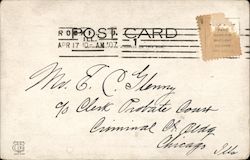 POST CARD
APR 17
Mr. E. C. Glenny
c/o Clerk Probate Court
Criminal Ct. Bldg
Chicago
Ills